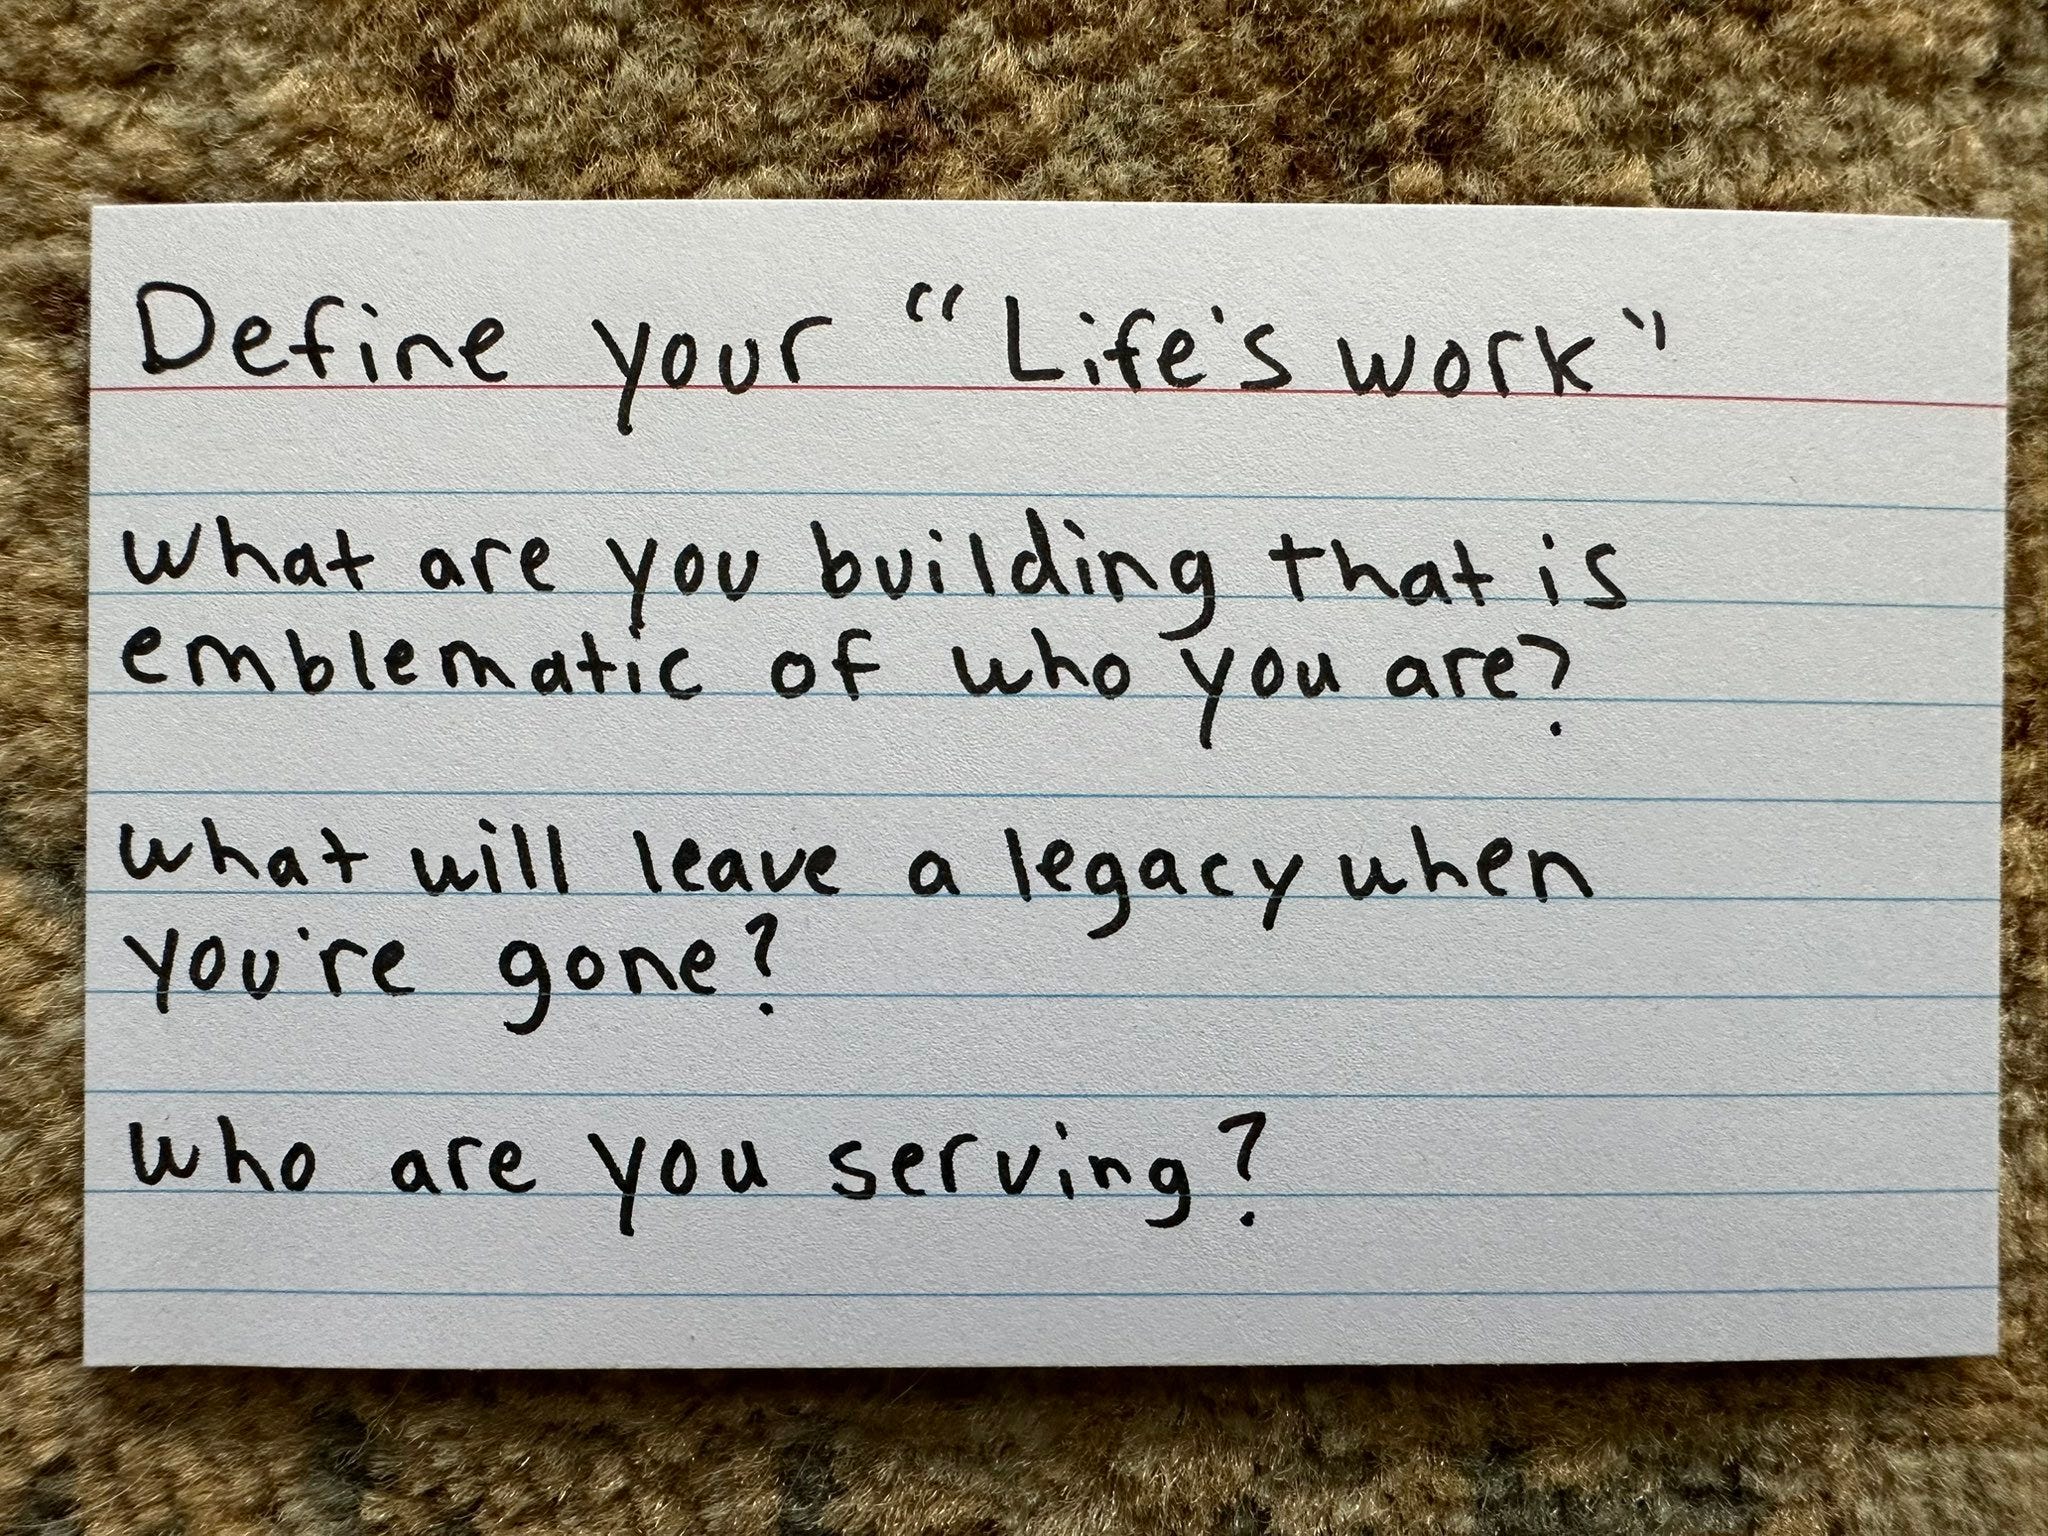 Define your "Life's work"
What are you building that is
emblematic of who you are?
What will leave a legacy when
you're gone?
Who are you serving?